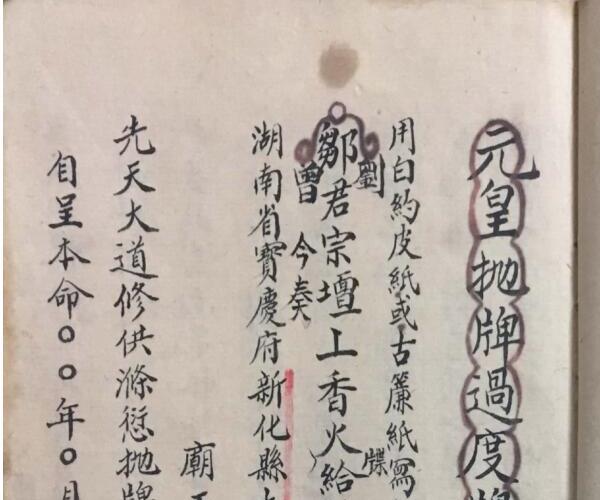 元皇抛牌過度
用白約皮紙或古簾紙寫
劉
鄒君宗壇上香火給牒
曾 今奏
湖南省寶慶府新化縣
廟王
先天大道修供滌愆抛牌
自呈本命〇〇年〇月